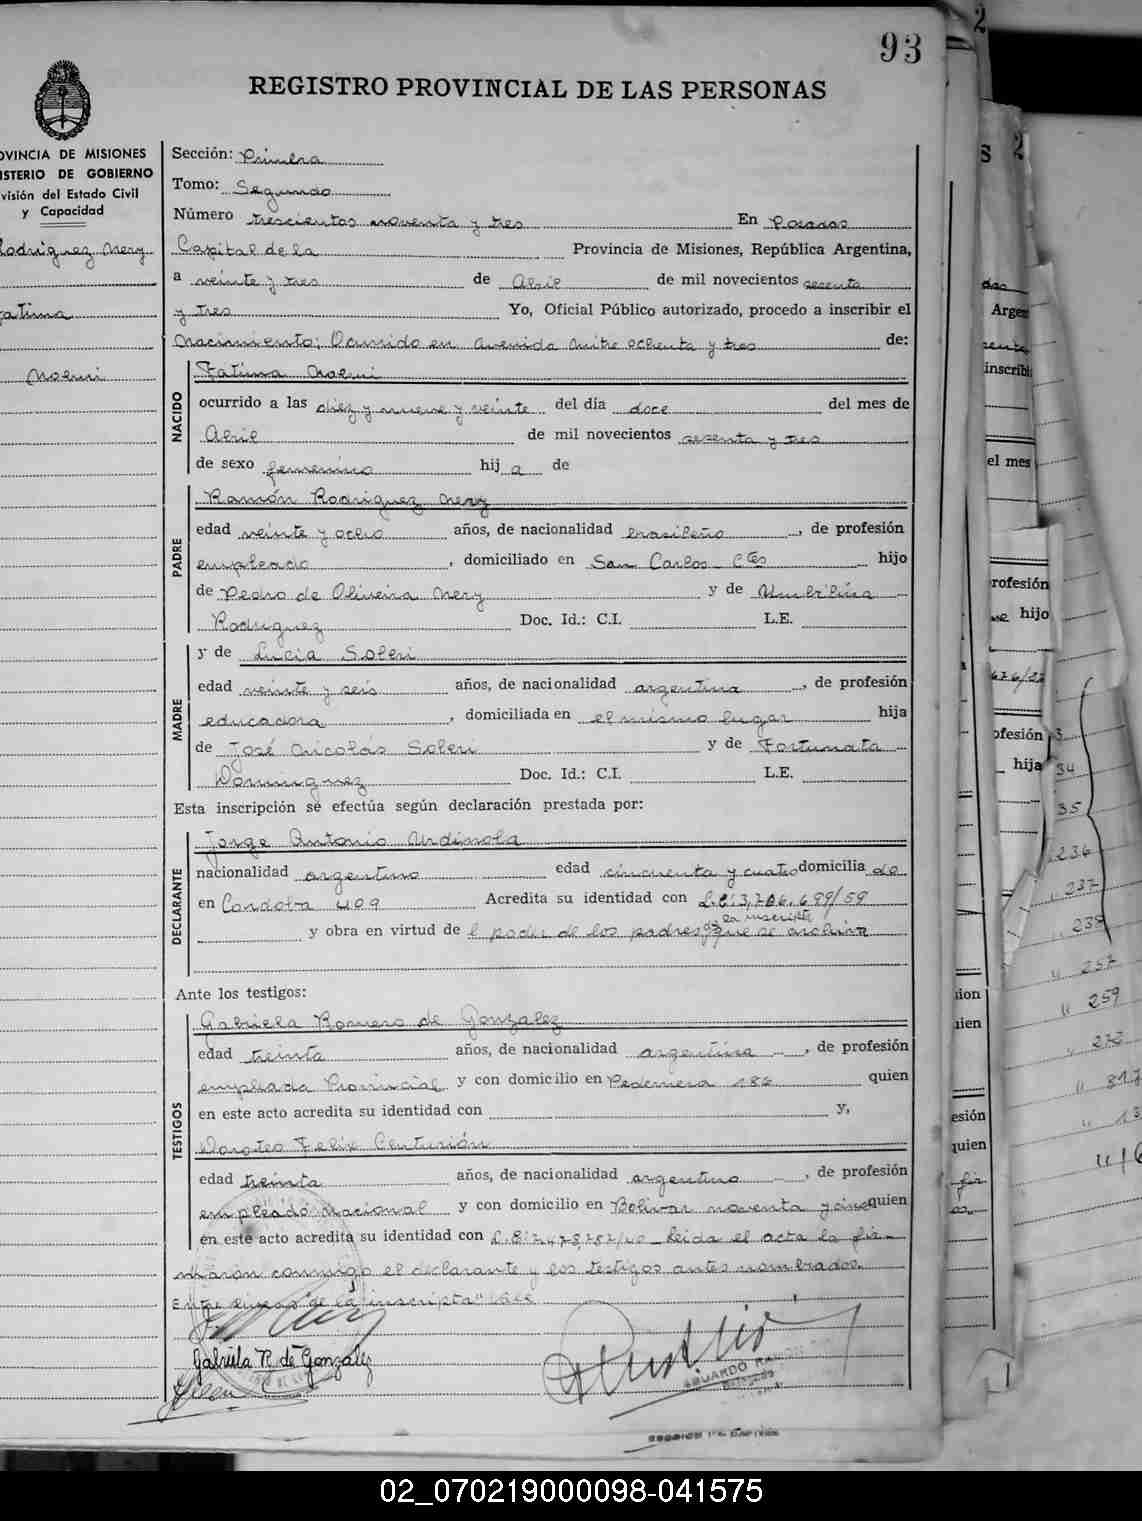 93
REGISTRO PROVINCIAL DE LAS PERSONAS
OVINCIA DE MISIONES
ISTERIO DE GOBIERNO
visión del Estado Civil
y Capacidad
Rodriguez Nery
Fatima
Noemi
Sección: Primera
Tomo: Segundo
Número trescientos noventa y tres En Posadas
Capital de la Provincia de Misiones, República Argentina,
a veinte y tres de Abril de mil novecientos sesenta
y tres Yo, Oficial Público autorizado, procedo a inscribir el
Nacimiento; Ocurrido en Avenida Mitre ochenta y tres de:
NACIDO
Fatima Noemi
ocurrido a las diez y nueve y veinte del día doce del mes de
Abril de mil novecientos sesenta y tres
de sexo femenino hij a de
PADRE
Ramón Rodriguez Nery
edad veinte y ocho años, de nacionalidad brasileño, de profesión
empleado, domiciliado en San Carlos Ctes hijo
de Pedro de Oliveira Nery y de Umbilina
Rodriguez Doc. Id.: C.I. L.E.
MADRE
y de Lucia Soleri
edad veinte y seis años, de nacionalidad argentina, de profesión
educadora, domiciliada en el mismo lugar hija
de José Nicolás Soleri y de Fortunata
Dominguez Doc. Id.: C.I. L.E.
Esta inscripción se efectúa según declaración prestada por:
DECLARANTE
Jorge Antonio Urdinola
nacionalidad argentino edad cincuenta y cuatro domicilia do
en Cordoba 409 Acredita su identidad con L.E: 3,706.699/59
de la inscripta
y obra en virtud de el poder de los padres que se archiva
Ante los testigos:
TESTIGOS
Gabriela Romero de Gonzalez
edad treinta años, de nacionalidad argentina, de profesión
empleada Provincial y con domicilio en Pedernera 186 quien
en este acto acredita su identidad con y,
Doroteo Felix Centurión
edad treinta años, de nacionalidad argentino, de profesión
empleado Nacional y con domicilio en Bolivar noventa y cinco quien
en este acto acredita su identidad con L.E: 7,478,252/40 Leida el acta la fir-
maron conmigo el declarante y los testigos antes nombrados.
Entre lineas "de la inscripta" Vale
Gabriela R. de Gonzalez
EDUARDO RAMON
2
s 2
Argen
inscribi
el mes
rofesión
hijo
676/22
ofesión
hija
34
35
236
237
238
257
259
272
317
sion
uien
esión
quien
02_070219000098-041575